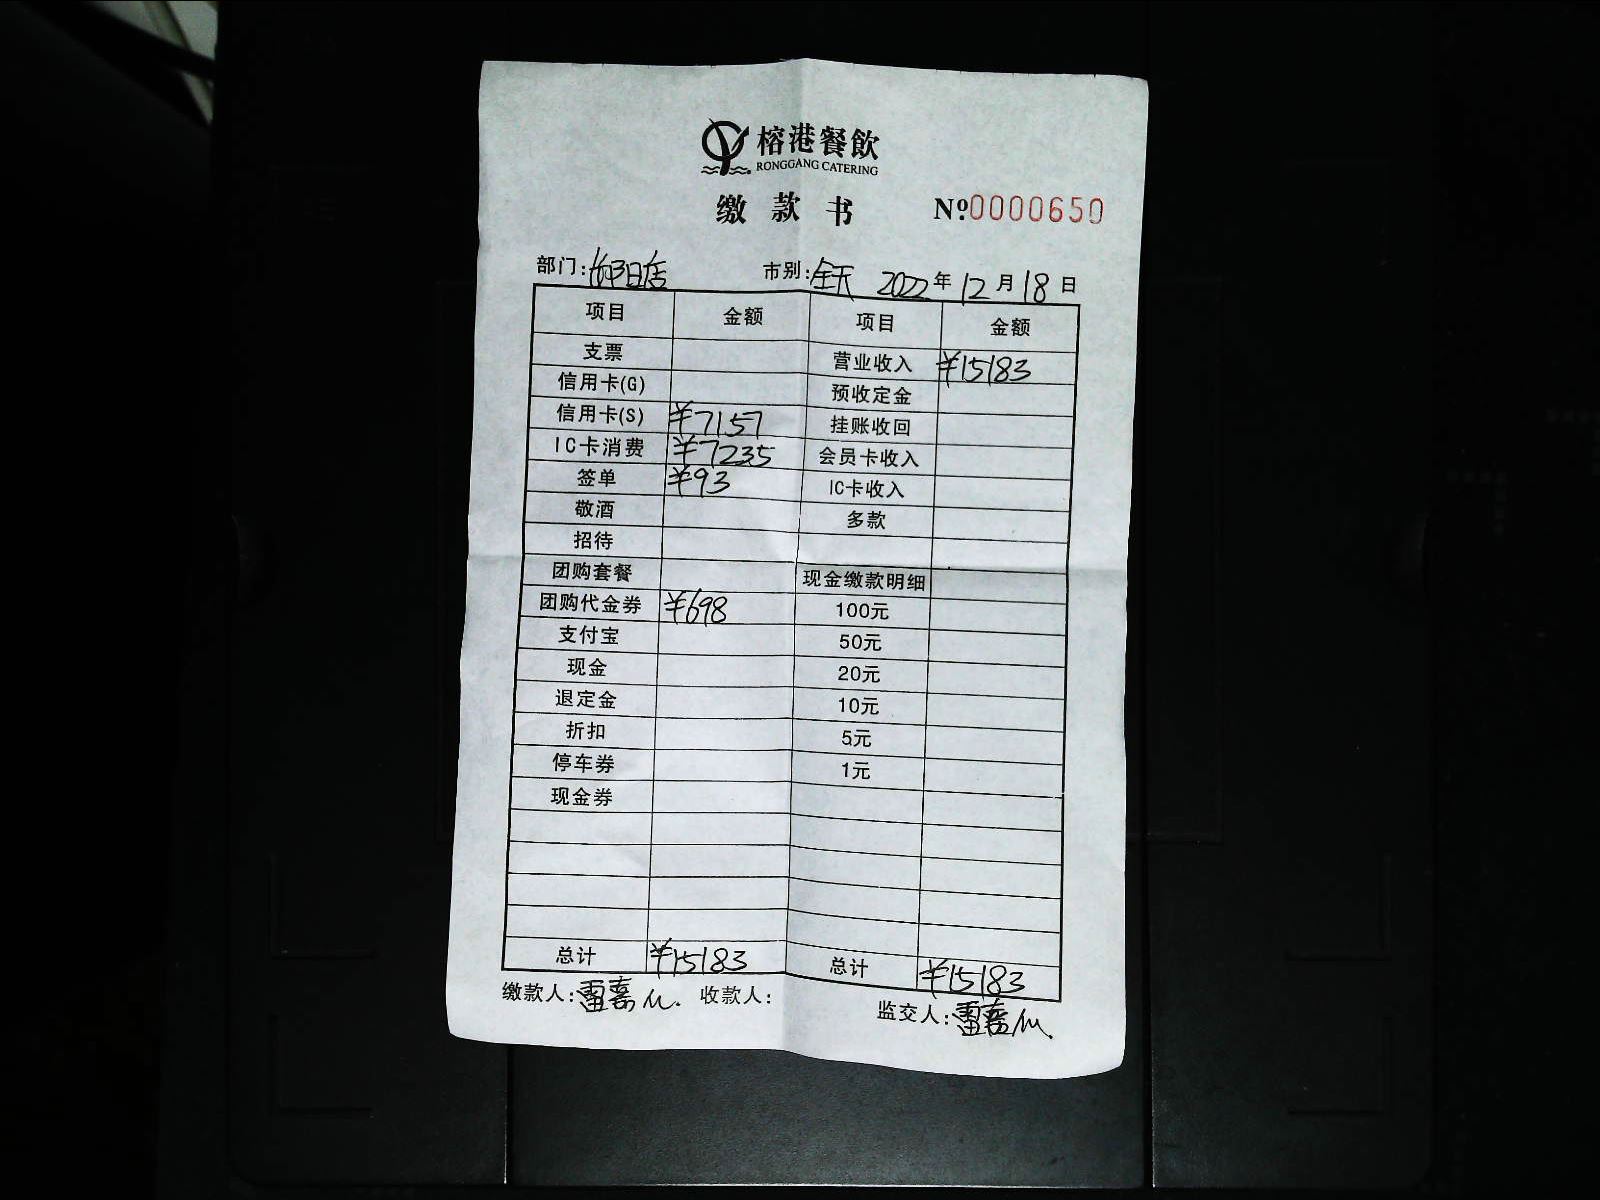 榕港餐飲
RONGGANG CATERING
缴款书 №0000650
部门: 市别:全天 2022年12月18日
项目 金额 项目 金额
支票 营业收入 ¥15183
信用卡(G) 预收定金
信用卡(S) ¥7157 挂账收回
IC卡消费 ¥7235 会员卡收入
签单 ¥93 IC卡收入
敬酒 多款
招待
团购套餐 现金缴款明细
团购代金券 ¥698 100元
支付宝 50元
现金 20元
退定金 10元
折扣 5元
停车券 1元
现金券
总计 ¥15183 总计 ¥15183
缴款人: 收款人: 监交人: